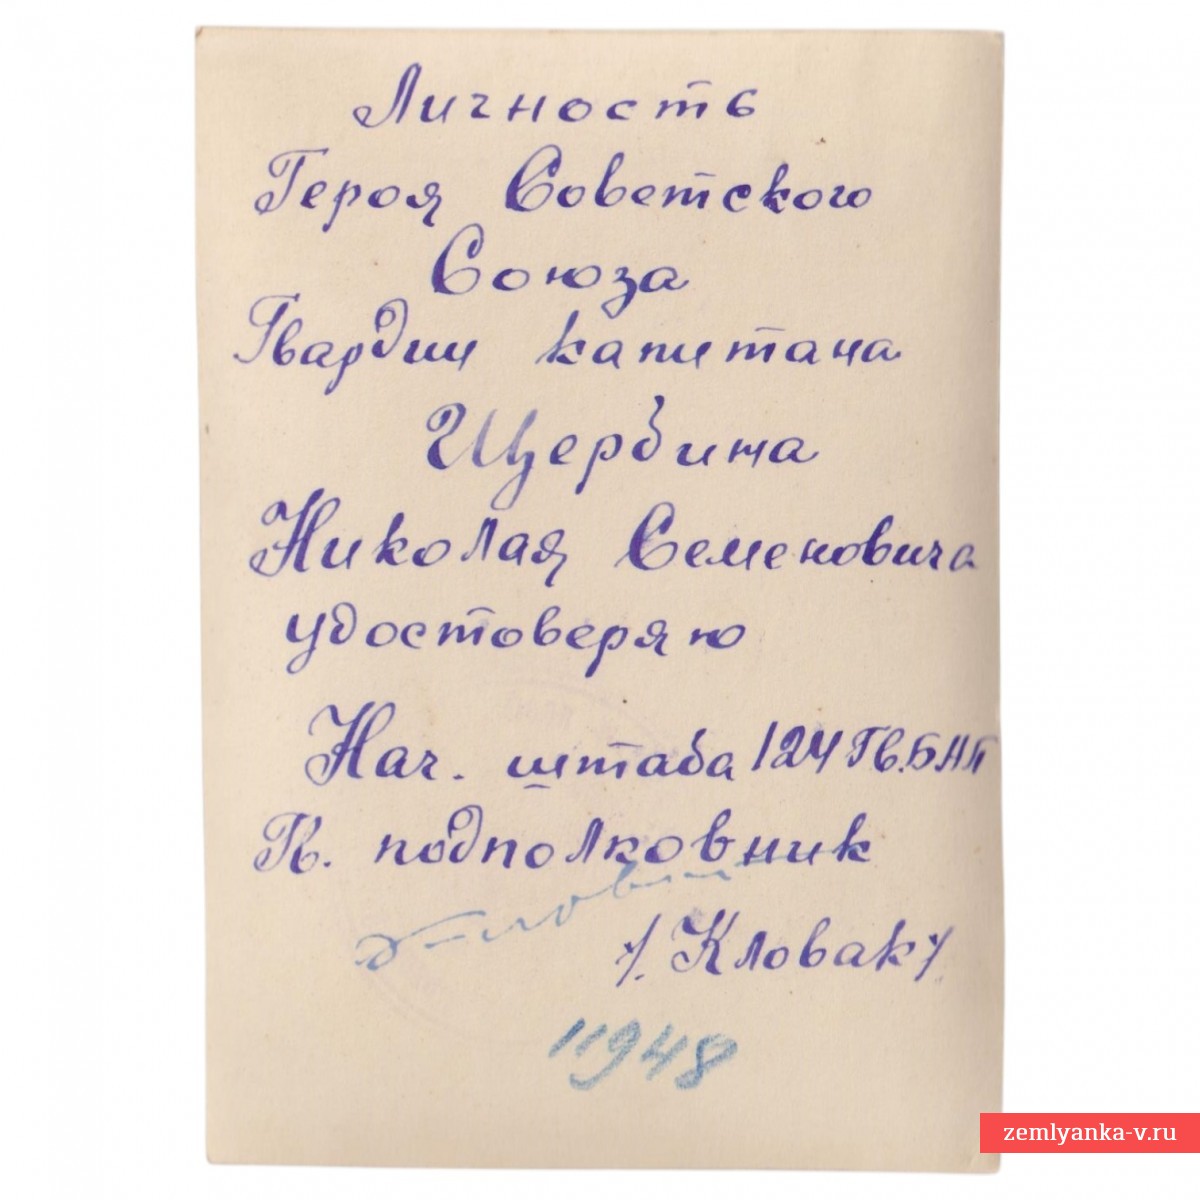 Личность
Героя Советского
Союза
Гвардии капитана
Щербина
Николая Семеновича
удостоверяю
Нач. штаба 124 Гв. БАП
Гв. подполковник
/Кловак/
11948
zemlyanka-v.ru